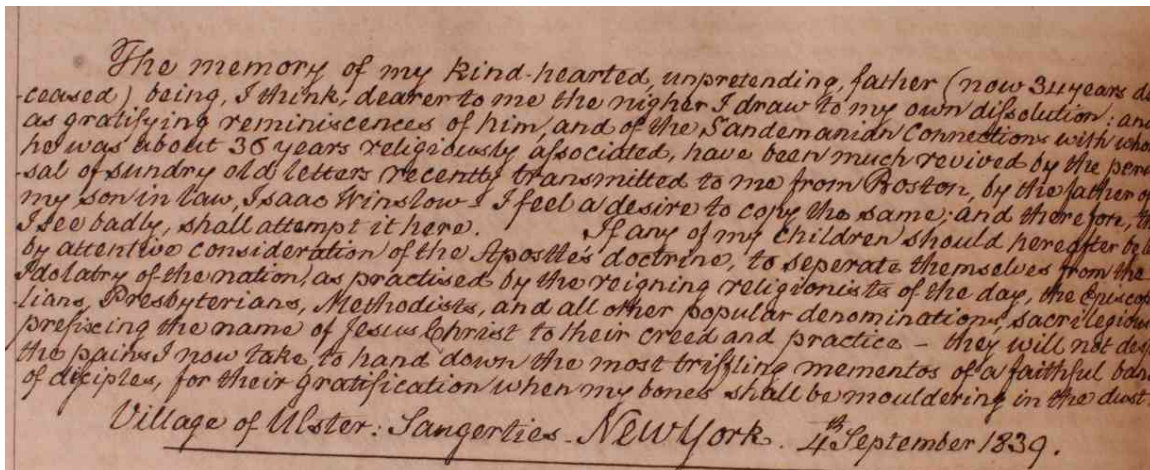 The memory of my kind-hearted, unpretending, father (now 34 years de
-ceased) being, I think, dearer to me the nigher I draw to my own dissolution: and
as gratifying reminiscences of him, and of the Sandemanian Connections with who
he was about 36 years religiously associated, have been much revived by the peru
-sal of sundry old letters recently transmitted to me from Boston, by the father of
my son in law, Isaac Winslow - I feel a desire to copy the same; and therefore, th
I see badly, shall attempt it here. If any of my children should hereafter be le
by attentive consideration of the Apostle's doctrine, to seperate themselves from the
Idolatry of the nation, as practised by the reigning religionists of the day, the Episcop
-lians, Presbyterians, Methodists, and all other popular denominations, sacrilegious
prefixing the name of Jesus Christ to their creed and practice - they will not des
the pains I now take, to hand down the most triffling mementos of a faithful ban
of diciples, for their gratification when my bones shall be mouldering in the dust.
Village of Ulster: Saugerties - New York. 4th September 1839.